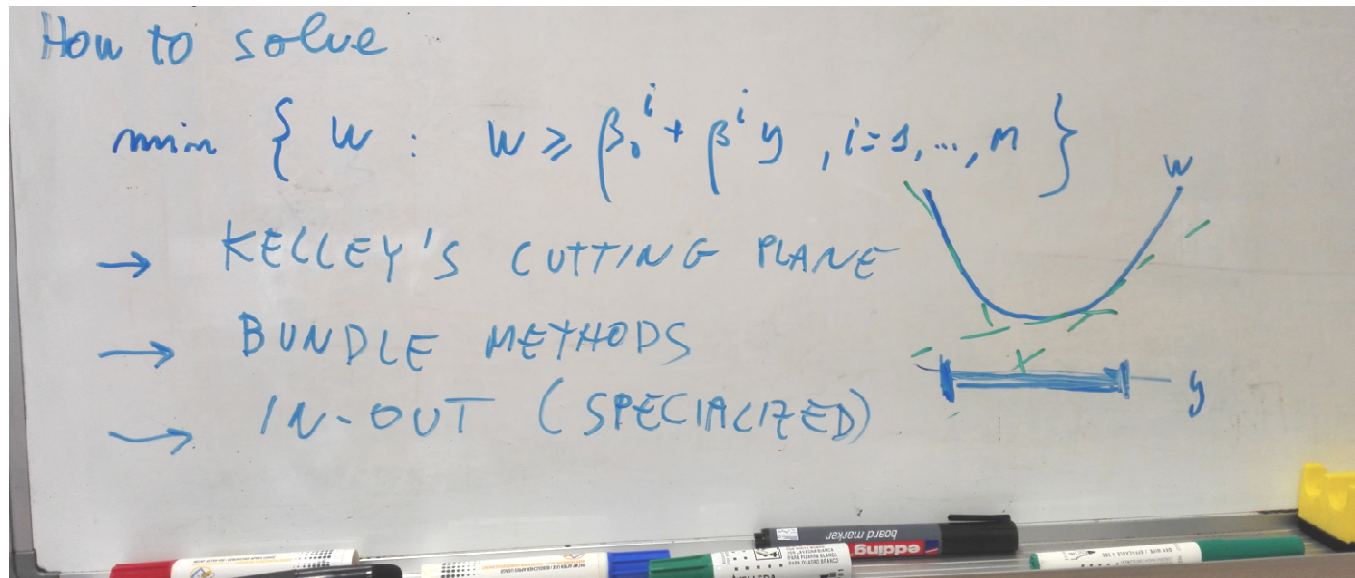 How to solve
min { w : w ≥ β₀ⁱ + βⁱ y , i=1,...,n }
w
→ KELLEY'S CUTTING PLANE
→ BUNDLE METHODS
y
→ IN-OUT (SPECIALIZED)
edding
board marker